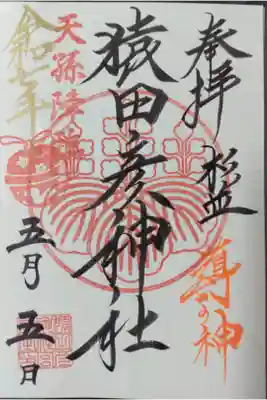 奉拝
導の神
猿田彦神社
天孫降臨
令和七年
五月五日